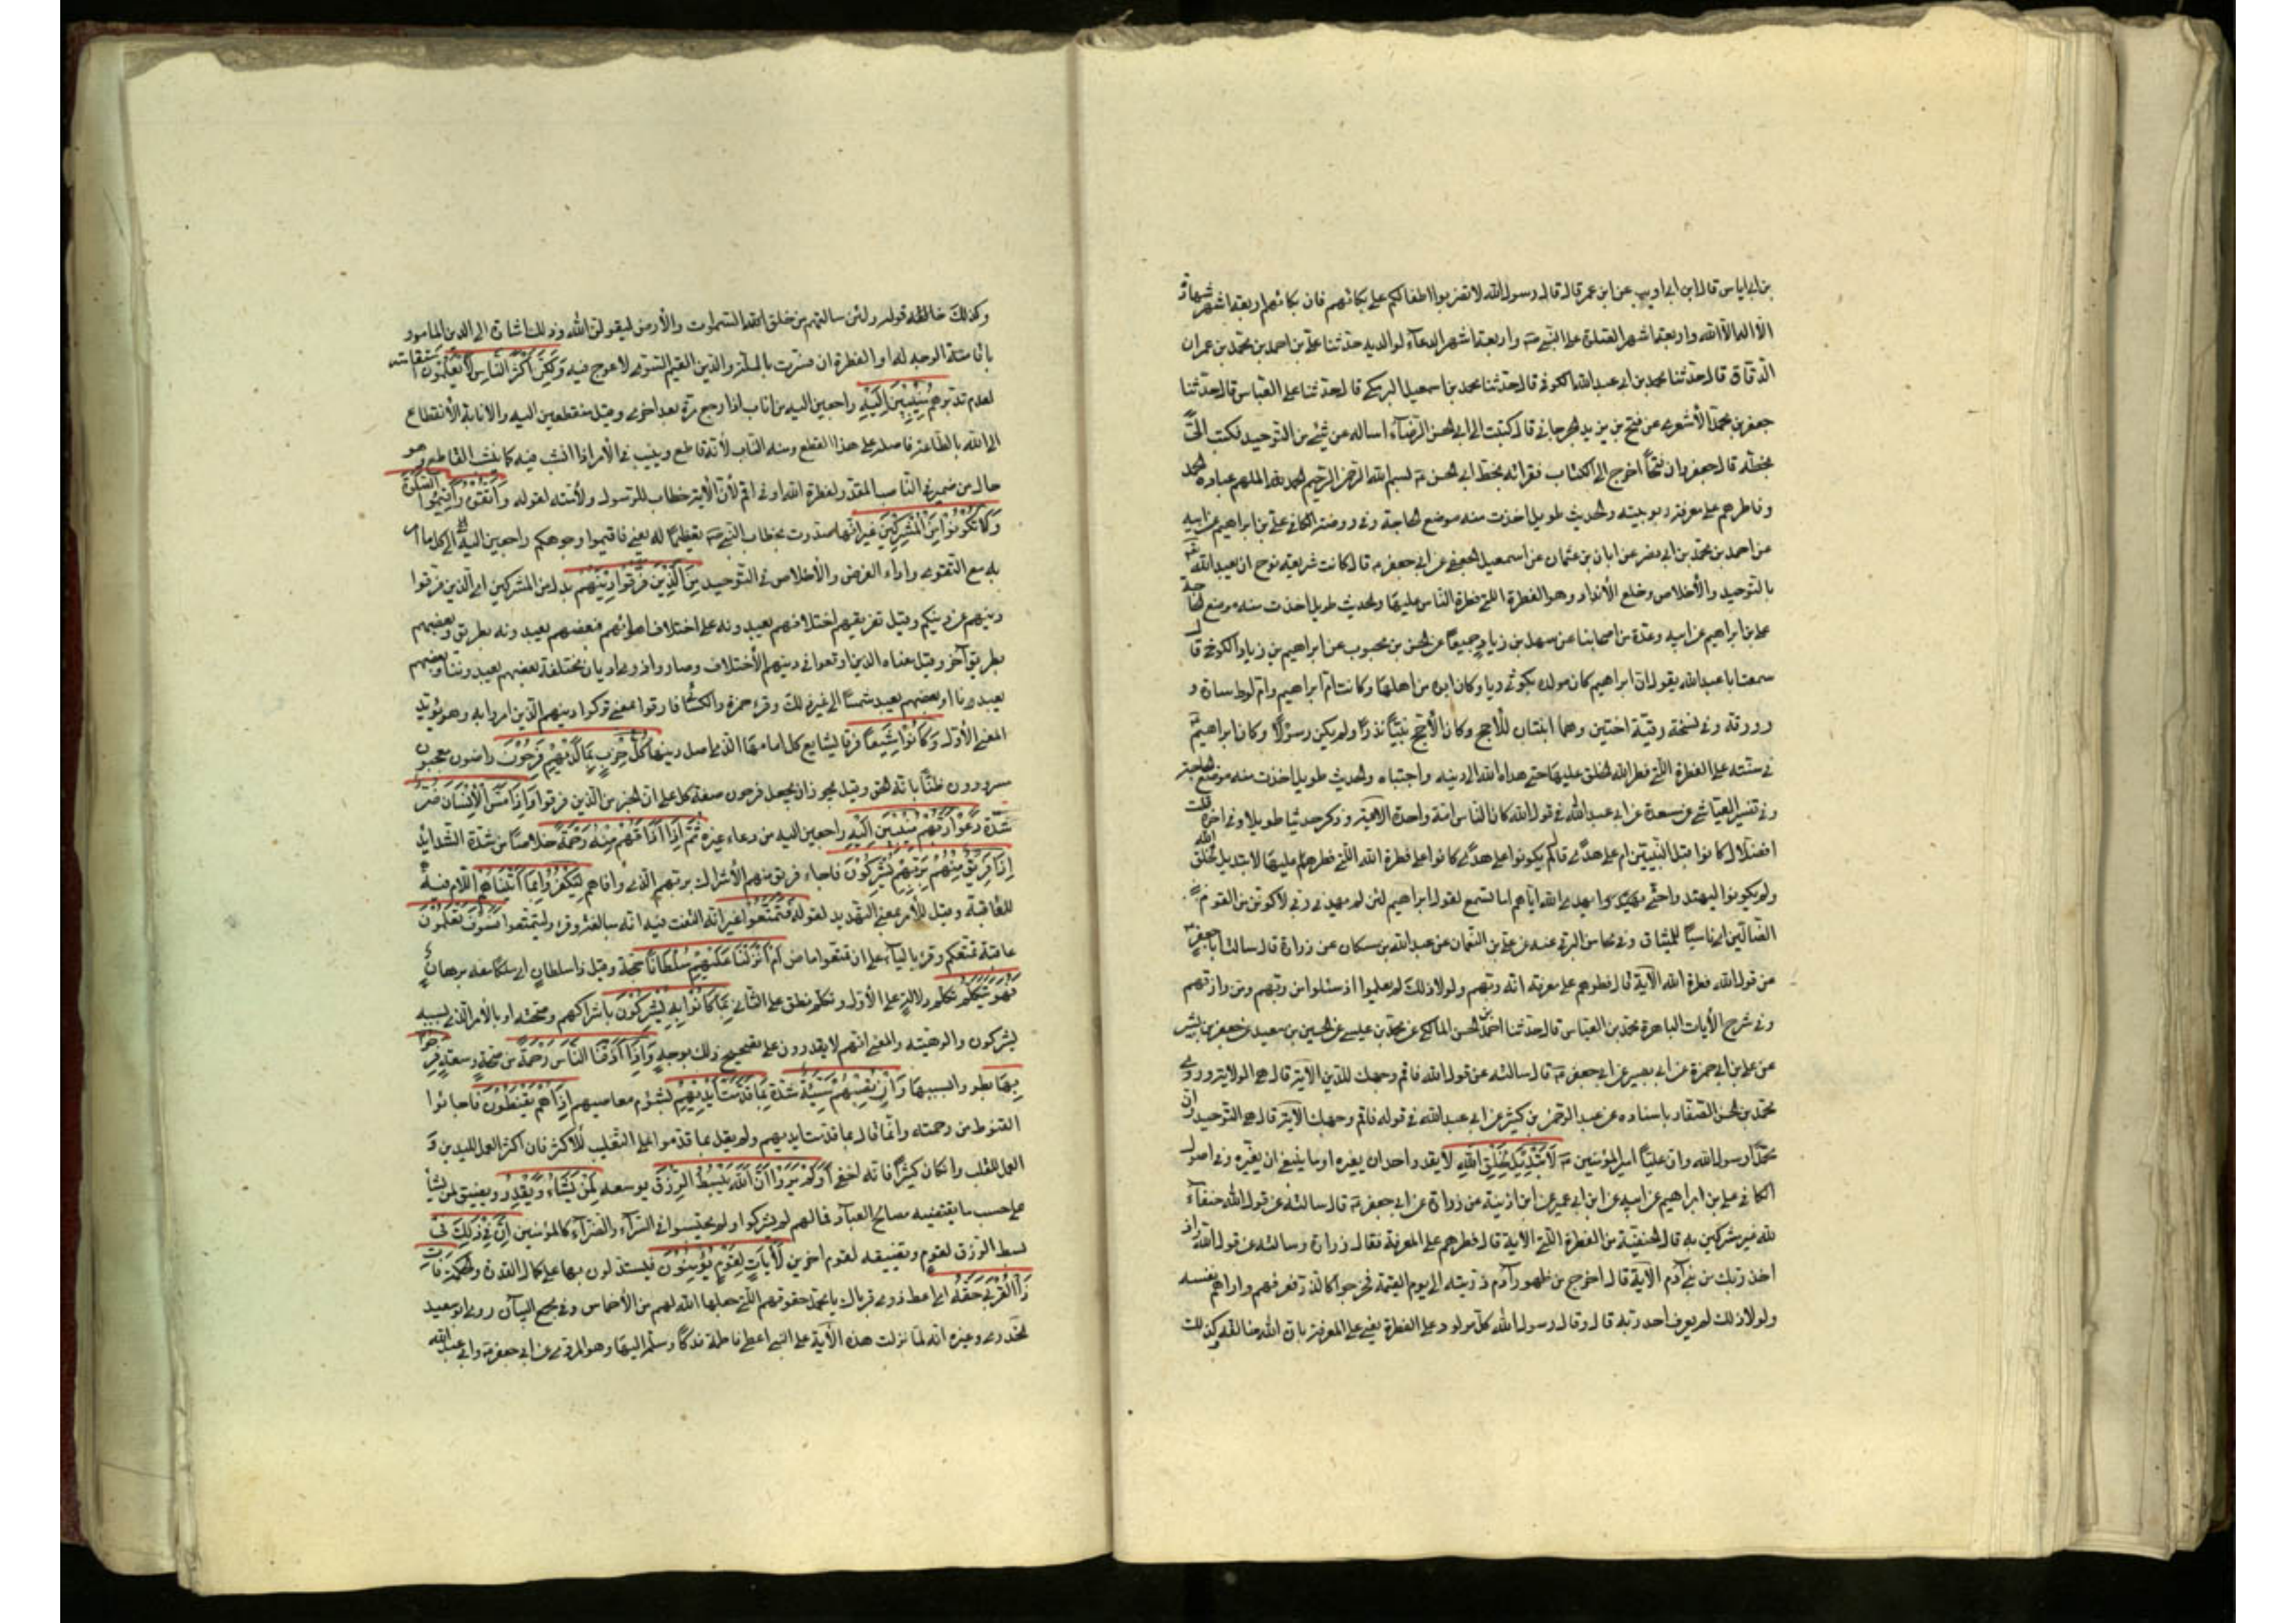 بن ابي اياس قال ابن ابي ذويب عن ابن عمر قال قال رسول الله لا تضربوا اطفالكم على بكائهم فان بكائهم اربعة اشهر شهادة
الا اله الا الله واربعة اشهر الصلوة على النبي ص واربعة اشهر الدعاء لوالديه حدثنا علي بن احمد بن محمد بن عمران
الدقاق قال حدثنا محمد بن ابي عبد الله الكوفي قال حدثنا محمد بن اسمعيل البرمكي قال حدثنا علي العباس قال حدثنا
جعفر بن محمد الأشعري عن فتح بن يزيد الجرجاني قال كتبت الى ابي الحسن الرضاء اساله عن شيء من التوحيد فكتب الي
بخطه قال جعفر وان فتحا اخرج الي الكتاب فقرأته بخط ابي الحسن ع بسم الله الرحمن الرحيم الحمد لله الملهم عباده الحمد
وفاطرهم على معرفة ربوبيته والحديث طويل اخذت منه موضع الحاجة وفي روضة الكافي علي بن ابراهيم عن ابيه
عن احمد بن محمد بن ابي نصر عن ابان بن عثمان عن اسمعيل الجعفي عن ابي جعفر ع قال كانت شريعة نوح ان يعبد الله
بالتوحيد والأخلاص وخلع الأنداد وهو الفطرة التي فطر الناس عليها والحديث طويل اخذت منه موضع الحاجة
علي بن ابراهيم عن ابيه وعدة من اصحابنا عن سهل بن زياد جميعا عن الحسن بن محبوب عن ابراهيم بن زياد الكوفي قال
سمعت ابا عبد الله يقول ان ابراهيم كان مولده بكوثى ربا وكان ابوه من اهلها وكانت ام ابراهيم وام لوط سارة و
وورقه وفي نسخة رقية اختين وهما ابنتان للاحج وكان الأحج نبيا نذرا ولم يكن رسولا وكان ابراهيم
في سنته على الفطرة التي فطر الله الخلق عليها حتى هداه الله الى دينه واجتباه والحديث طويل اخذت منه موضع الحاجة
وفي تفسير العياشي عن مسعدة عن ابي عبد الله في قول الله كان الناس امة واحدة الآية وذكر حديثا طويلا وفي آخره قلت
افضلال كانوا قبل النبيين ام على هدى قال لم يكونوا على هدى كانوا على فطرة الله التي فطرهم عليها لا تبديل لخلق الله
ولم يكونوا ليهتدوا حتى يهديهم الله اما تسمع لقول ابراهيم لئن لم يهدني ربي لأكونن من القوم
الضالين اي ناسيا للميثاق وفي محاسن البرقي عنه عن علي بن النعمان عن عبد الله بن مسكان عن زرارة قال سالت ابا جعفر ع
من قول الله فطرة الله الآية قال فطرهم على معرفة انه ربهم ولولا ذلك لم يعلموا اذ سئلوا من ربهم ومن رازقهم
وفي شرح الأيات الباهرة محمد بن العباس قال حدثنا احمد بن الحسن المالكي عن محمد بن عيسى عن الحسين بن سعيد عن جعفر بن بشير
عن علي بن ابي حمزة عن ابي بصير عن ابي جعفر ع قال سالته عن قول الله فاقم وجهك للدين الآية قال هي الولاية وروى
محمد بن الحسن الصفار باسناده عن عبد الرحمن بن كثير عن ابي عبد الله في قوله فاقم وجهك الآية قال هي التوحيد وان
محمدا رسول الله وان عليا امير المؤمنين ع لَا تَبْدِيلَ لِخَلْقِ اللهِ لا يقدر احد ان يغيره او ما ينبغي ان يغيره وفي اصول
الكافي علي بن ابراهيم عن ابيه عن ابن ابي عمير عن ابن اذينة عن زرارة عن ابي جعفر ع قال سالته عن قول الله حنفاء
لله غير مشركين به قال الحنيفية من الفطرة التي الآية قال فطرهم على المعرفة فقال زرارة وسالته عن قول الله واذ
اخذ ربك من بني آدم الآية قال اخرج من ظهور آدم ذريته الى يوم القيمة فخرجوا كالذر فعرفهم واراهم نفسه
ولولا ذلك لم يعرف احد ربه قال وقال رسول الله كل مولود على الفطرة يعني على المعرفة بان الله خالقه وكذلك
وكذلك خالقه قوله ولئن سالتهم من خلق السموات والأرض ليقولن الله ذلك اشارة الى الدين المامور
باقامة الوجه له او الفطرة ان فسرت بالملة والدين القيم المستوي لا عوج فيه وَلكِنَّ اَكْثَرَ النَّاسِ لَا يَعْلَمُونَ استقامته
لعدم تدبرهم مُنِيبِينَ اِلَيْهِ راجعين اليه من اناب اذا رجع مرة بعد اخرى وقيل منقطعين اليه والأنابة الأنقطاع
الى الله بالطاعة فاصله على هذا القطع ومنه الناب لأنه قاطع وينيب في الأمر اذا انشب فيه كما ينشب القاطع وهو
حال من ضمير في الناصب المقدر لفطرة الله او في اقم لأن الآية خطاب للرسول ولأمته لقوله وَاتَّقُوهُ وَاَقِيمُوا الصَّلوةَ
وَلَا تَكُونُوا مِنَ الْمُشْرِكِينَ غير انها صدرت بخطاب النبي ص تعظيما له يعني فاقيموا وجوهكم راجعين اليه الى كل ما امر
به مع التقوى واداء الفرض والأخلاص في التوحيد مِنَ الَّذِينَ فَرَّقُوا دِينَهُمْ بدل من المشركين اي الذين فرقوا
دينهم عن دينكم وقيل تفريقهم اختلافهم يعبدونه على اختلاف اهوائهم فبعضهم يعبدونه بطريق وبعضهم
بطريق آخر وقيل معناه الذين اوقعوا في دينهم الأختلاف وصاروا ذوي اديان مختلفة بعضهم يعبد وثنا وبعضهم
يعبد نارا وبعضهم يعبد شمسا الى غير ذلك وقرء حمزة والكسائي فارقوا بمعنى تركوا دينهم الذين امروا به وهو يؤيد
المعنى الأول وَكَانُوا شِيَعاً فرقا يشايع كل امامها الذي اصل دينها كُلُّ حِزْبٍ بِمَا لَدَيْهِمْ فَرِحُونَ راضون معجبون
مسرورون ظنا بانه الحق وقيل يجوز ان يجعل فرحون صفة كل على ان الخبر من الذين فرقوا وَاِذَا مَسَّ الْاِنْسَانَ ضُرٌّ
شدة دَعَوْا رَبَّهُمْ مُنِيبِينَ اِلَيْهِ راجعين اليه من دعاء غيره ثُمَّ اِذَا اَذَاقَهُمْ مِنْهُ رَحْمَةً خلاصا من شدة الشدائد
اِذَا فَرِيقٌ مِنْهُمْ بِرَبِّهِمْ يُشْرِكُونَ فاجاء فريق منهم الأشراك بربهم الذي عافاهم لِيَكْفُرُوا بِمَا اتَيْنَاهُمْ اللام فيه
للعاقبة وقيل للأمر بمعنى التهديد لقوله فَتَمَتَّعُوا غير انه التفت فيه انه مبالغة وقرء وليتمتعوا فَسَوْفَ تَعْلَمُونَ
عاقبة تمتعكم وقرء بالياء على ان تمتعوا ماض اَمْ اَنْزَلْنَا عَلَيْهِمْ سُلْطَاناً حجة وقيل ذا سلطان اي ملكا معه برهان
فَهُوَ يَتَكَلَّمُ تكلم دلالة على الأول وتكلم نطق على الثاني بِمَا كَانُوا بِهِ يُشْرِكُونَ باشراكهم وصحته او بالأمر الذي بسببه
يشركون والوهيته والمعنى انهم لا يقدرون على تصحيح ذلك بوجه وَاِذَا اَذَقْنَا النَّاسَ رَحْمَةً من صحة وسعة فَرِحُوا
بِهَا بطروا بسببها وَاِنْ تُصِبْهُمْ سَيِّئَةٌ شدة بِمَا قَدَّمَتْ اَيْدِيهِمْ بشؤم معاصيهم اِذَا هُمْ يَقْنَطُونَ فاجائوا
القنوط من رحمته وانما قال بما قدمت ايديهم ولم يقل بما قدموا على التغليب للأكثر فان اكثر العمل لليدين و
العمل للقلب وان كان كثيرا فانه اخفى اَوَلَمْ يَرَوْا اَنَّ اللهَ يَبْسُطُ الرِّزْقَ يوسعه لِمَنْ يَشَاءُ وَيَقْدِرُ ويضيق لمن يشأ
على حسب ما يقتضيه مصالح العباد فما لهم لم يشكروا ولم يحتسبوا في السراء والضراء كالمؤمنين اِنَّ فِي ذلِكَ في
بسط الرزق لقوم وتضييقه لقوم آخرين لَآيَاتٍ لِقَوْمٍ يُؤْمِنُونَ فيستدلون بها على كمال القدرة والحكمة فَآتِ
ذَا الْقُرْبى حَقَّهُ اي اعط ذوي قرباك يا محمد حقوقهم التي جعلها الله لهم من الأخماس وفي مجمع البيان روى ابو سعيد
الخدري وغيره انه لما نزلت هذه الآية على النبي اعطى فاطمة فدكا وسلم اليها وهو المروي عن ابي جعفر ع وابي عبد الله